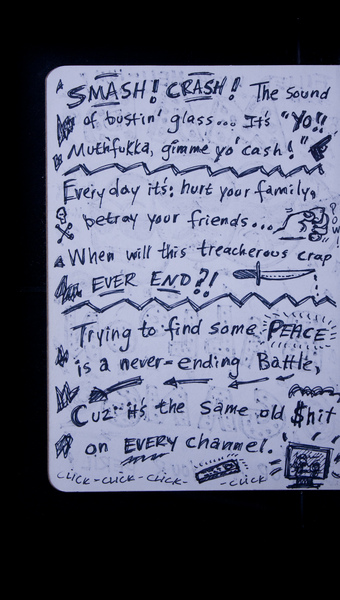 SMASH! CRASH! The sound
of bustin' glass... It's "Yo!!
Muthfukka, gimme yo' cash!"
Everyday it's: hurt your family,
betray your friends...
POW!
When will this treacherous crap
EVER END?!
Trying to find some PEACE
is a never-ending Battle,
Cuz it's the same old $hit
on EVERY channel.
CLICK-CLICK-CLICK- -CLICK